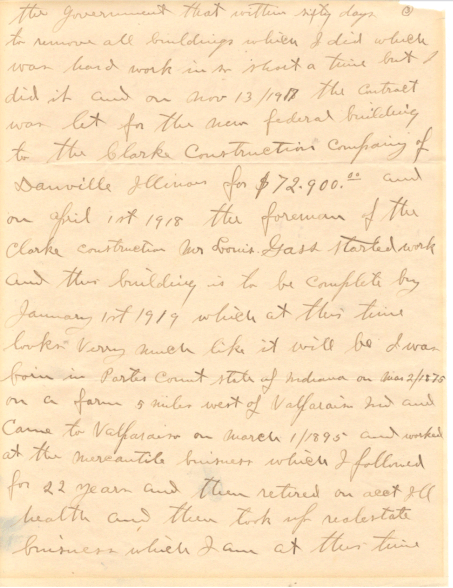 the Government that within sixty days
to remove all buildings which I did which
was hard work in so short a time but I
did it and on Nov 13/1917 the contract
was let for the new federal building
to the Clarke Construction Compaing of
Danville Illinois for $72.900.00 and
on april 1st 1918 the foreman of the
Clarke construction Mr Louis. Gass started work
and this building is to be complete by
January 1st 1919 which at this time
looks Verry much like it will be I was
born in Porter Count state of Indiana on Mar 2/1875
on a farm 5 miles west of Valparaiso Ind and
Came to Valparaiso on March 1/1895 and worked
at the mercantile buisness which I followed
for 22 years and then retired on acct Ill
health and then took up realestate
buisness which I am at this time